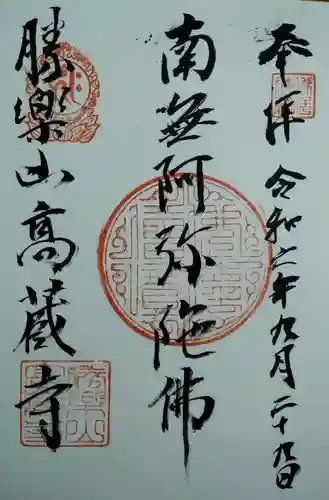 奉拝 令和六年九月二十九日
南無阿弥陀佛
勝楽山高蔵寺